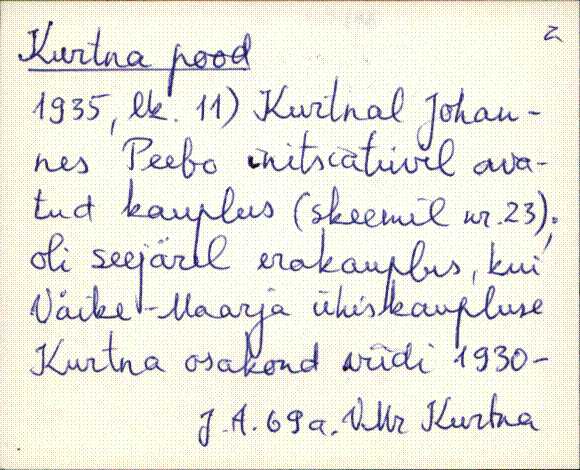 2
Kurtna pood
1935, lk. 11) Kurtnal Johan-
nes Peebo initsiatiivil ava-
tud kauplus (skeemil nr. 23);
oli seejärel erakauplus, kui
Väike-Maarja ühiskaupluse
Kurtna osakond viidi 1930-
J.A. 69a. V.Mr Kurtna